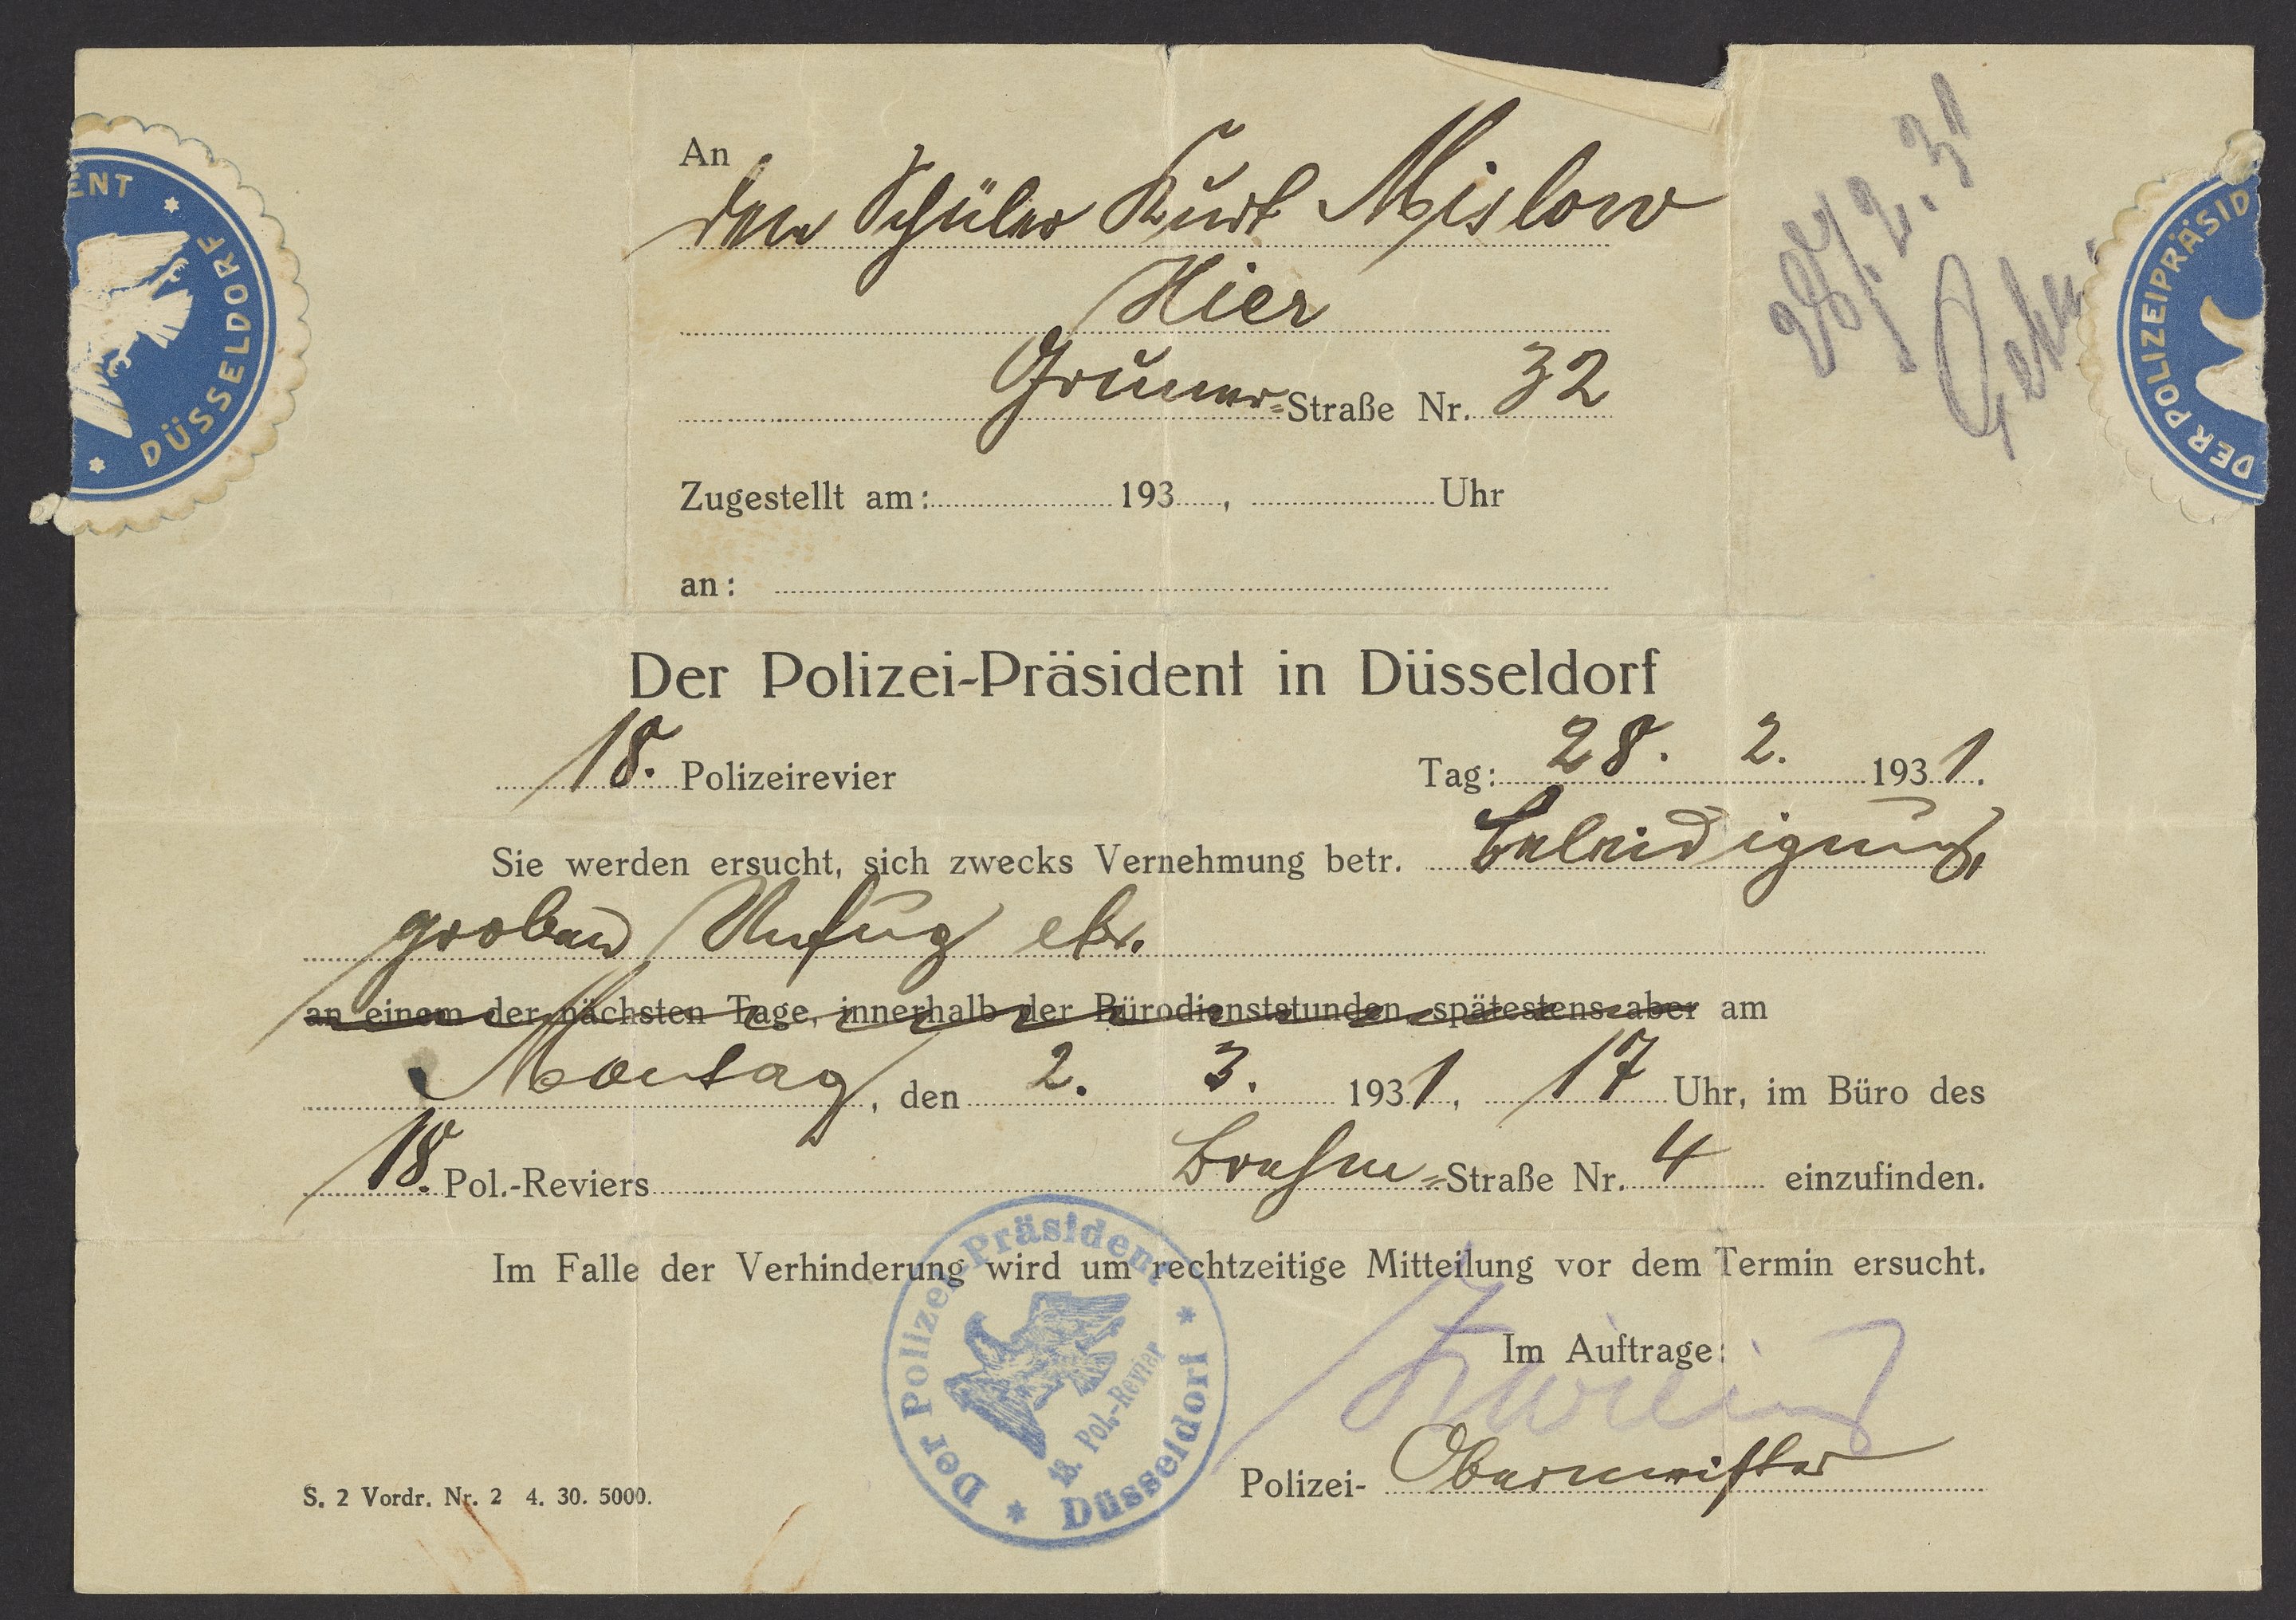 An
den Schüler Kurt Mislow
Hier
Gruner=Straße Nr. 32
Zugestellt am: 193 , Uhr
an:
28.2.31
ENT * DÜSSELDORF *
DER POLIZEIPRÄSID
Der Polizei-Präsident in Düsseldorf
18. Polizeirevier Tag: 28. 2. 1931.
Sie werden ersucht, sich zwecks Vernehmung betr. Beleidigung,
groben Unfug etc.
an einem der nächsten Tage, innerhalb der Bürodienststunden, spätestens aber am
Montag, den 2. 3. 1931, 17 Uhr, im Büro des
18. Pol.-Reviers Brehm=Straße Nr. 4 einzufinden.
Im Falle der Verhinderung wird um rechtzeitige Mitteilung vor dem Termin ersucht.
Im Auftrage:
Polizei- Obermeister
Der Polizei-Präsident * Düsseldorf *
18. Pol.-Revier
S. 2 Vordr. Nr. 2 4. 30. 5000.